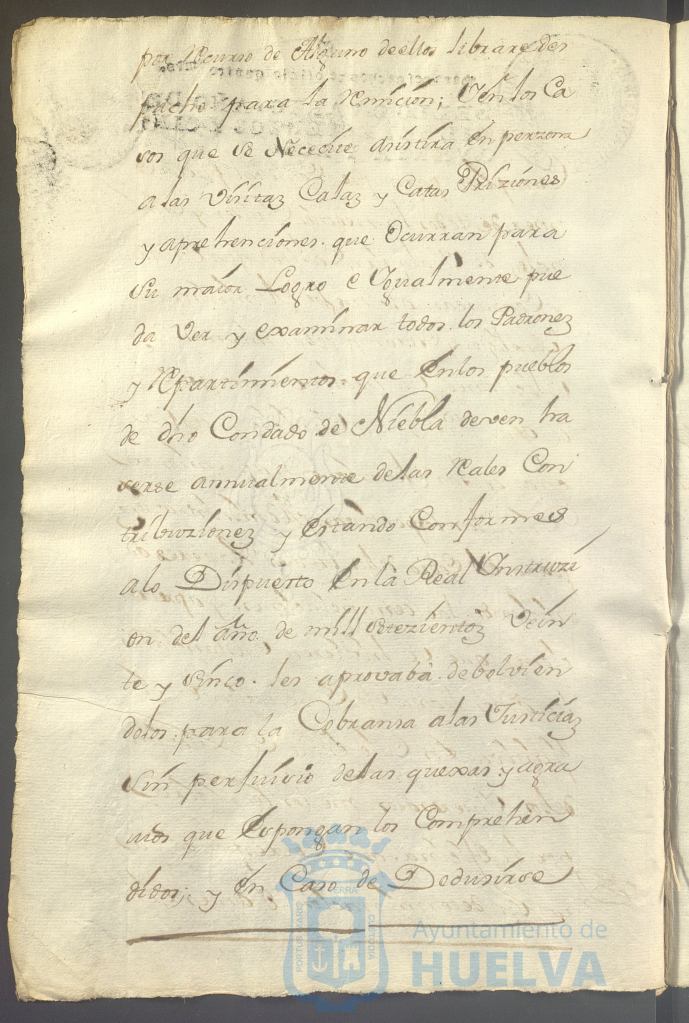 por recurso de Alguno deellos librare des
pacho para la remicion; Yen los Ca
sos que se Nececite asistira en perzona
a las Visitaz Calaz y Catas Priziones
y aprehenciones que Ocurran para
su maior Logro e Ygualmente pue
da Ver y examinar todos los Padronez
y Repartimientos que en los pueblos
de dho Condado de Niebla deven ha
verse annualmente de las reales Con
tribuzionez y estando Conformes
alo Dispuesto en la Real Ynstruzi
on del año de mill setezientoz vein
te y sinco les aprovaba debolvien
dolos para la Cobransa alas Justiciaz
sin perjuicio de las quexas y agra
vios que Espongan los Comprehen
didos; y en Caso de Dedusirse
Ayuntamiento de
HUELVA
PORTUS MARIS
TERRA
CUSTODIA